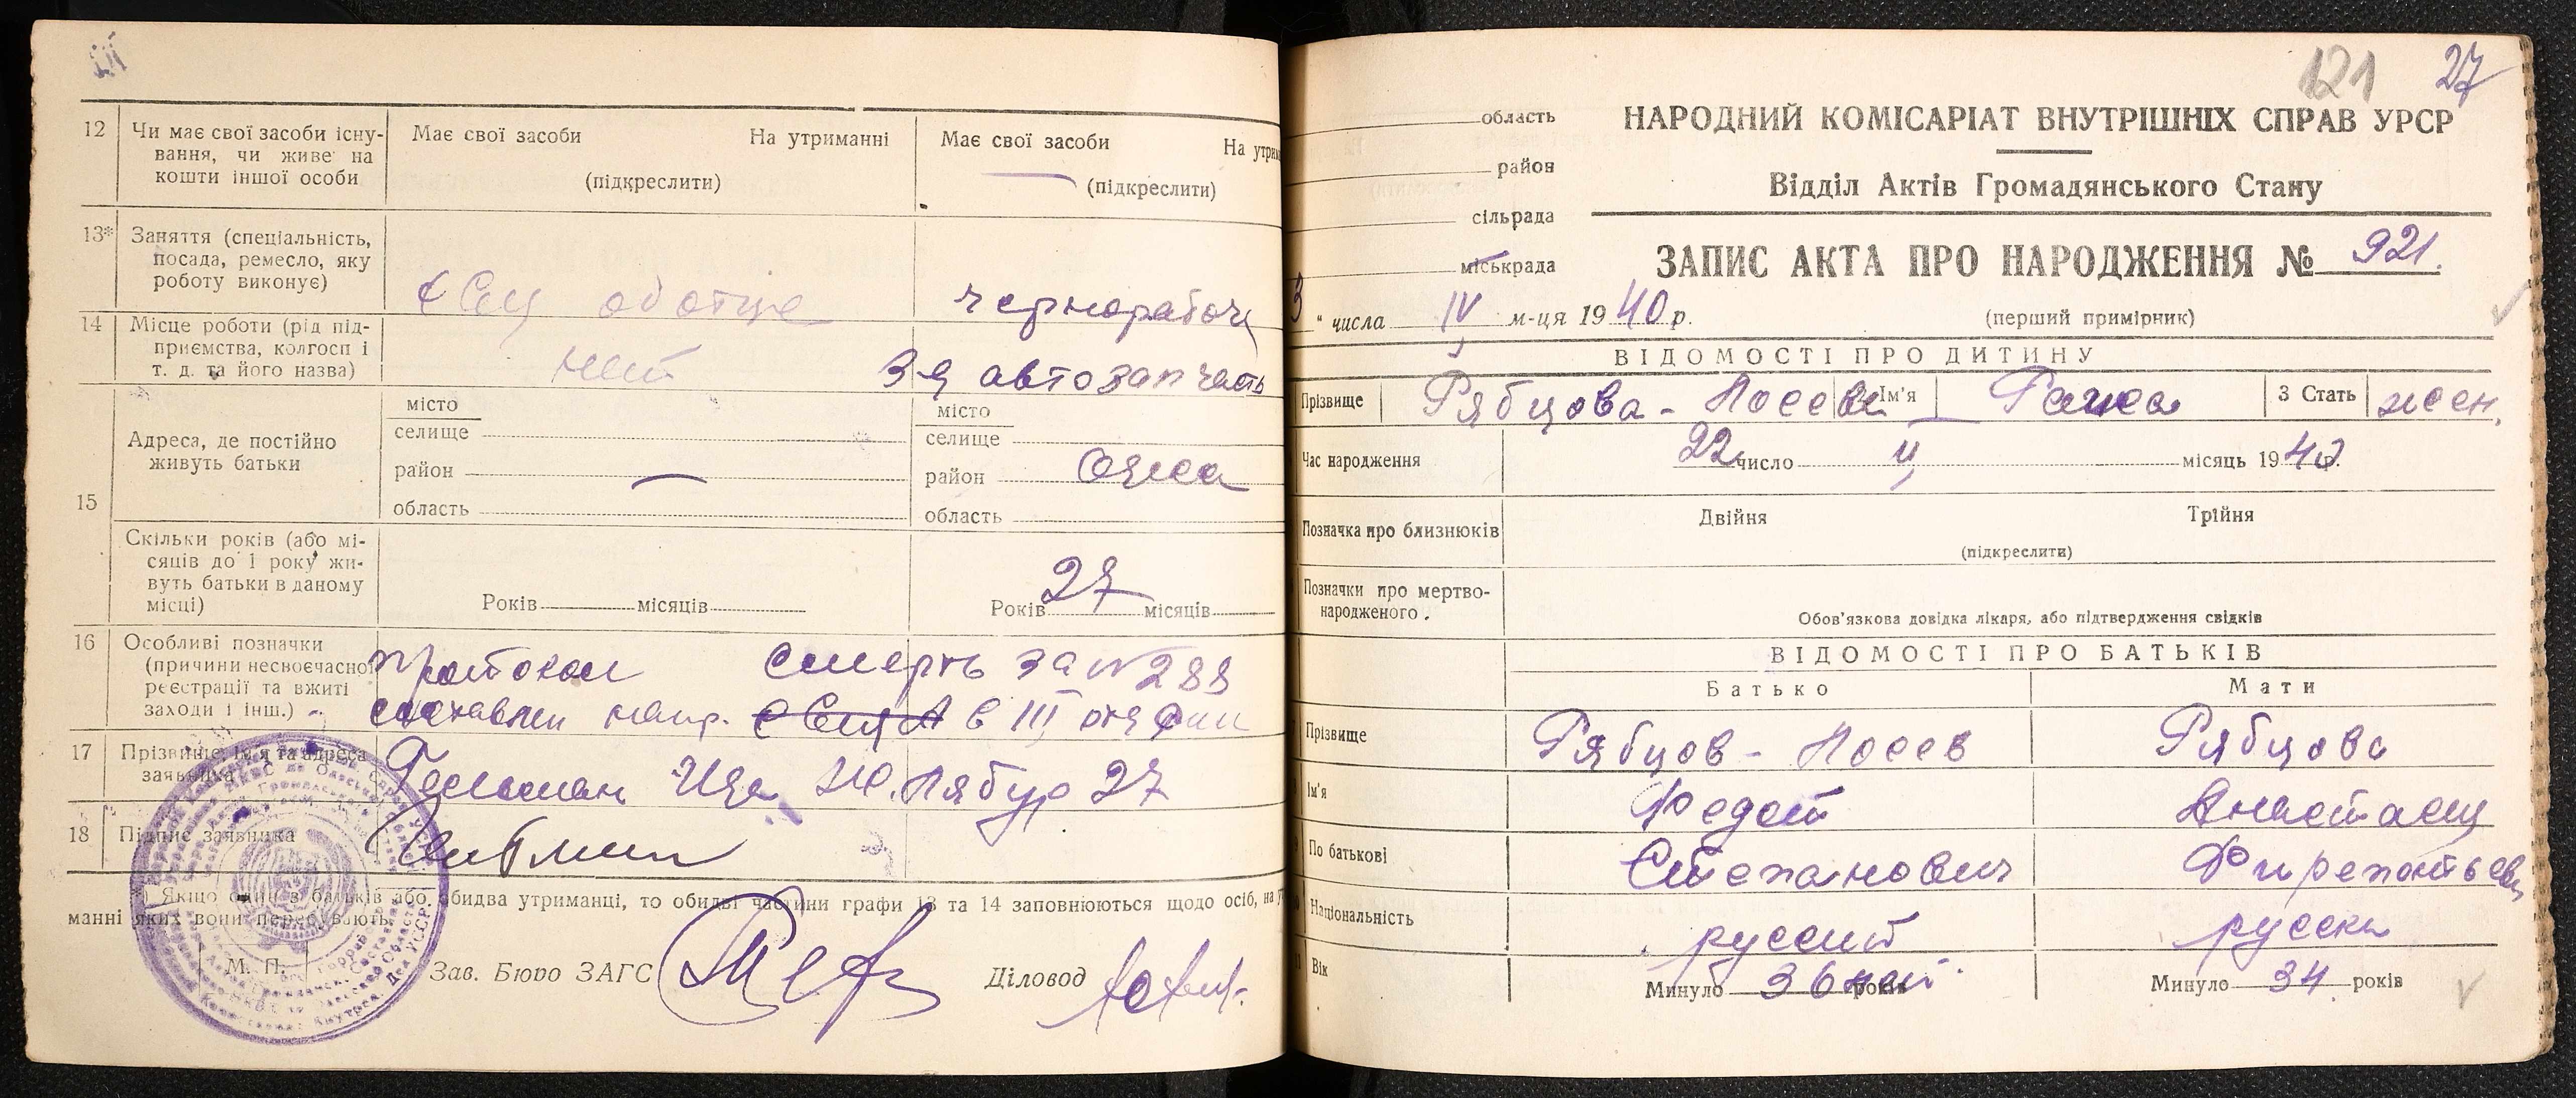 12
Чи має свої засоби існу-
вання, чи живе на
кошти іншої особи
Має свої засоби На утриманні
(підкреслити)
Має свої засоби На утрим
(підкреслити)
13*
Заняття (спеціальність,
посада, ремесло, яку
роботу виконує)
чернорабоч
14
Місце роботи (рід під-
приємства, колгосп і
т. д. та його назва)
нет
З-д автозапчасть
15
Адреса, де постійно
живуть батьки
місто
селище
район
область
місто
селище
район Одеса
область
Скільки років (або мі-
сяців до 1 року жи-
вуть батьки в даному
місці)
Років місяців
Років 27 місяців
16
Особливі позначки
(причини несвоєчасної
реєстрації та вжиті
заходи і інш.)
протокол смерть за №288
составлен напр. в III
17
Прізвище, ім'я та адреса
заявника
27
18
Підпис заявника
* Якщо один з батьків або обидва утриманці, то обидві частини графи 13 та 14 заповнюються щодо осіб, на у
манні яких вони перебувають.
М. П.
Зав. Бюро ЗАГС
Діловод
121 27
область
район
сільрада
міськрада
НАРОДНИЙ КОМІСАРІАТ ВНУТРІШНІХ СПРАВ УРСР
Відділ Актів Громадянського Стану
ЗАПИС АКТА ПРО НАРОДЖЕННЯ № 921.
(перший примірник)
3 " числа IV м-ця 1940 р.
ВІДОМОСТІ ПРО ДИТИНУ
Прізвище Рябцова- Ім'я 3 Стать жен.
Час народження 22 число II місяць 1940 р.
Позначка про близнюків
Двійня Трійня
(підкреслити)
Позначки про мертво-
народженого.
Обов'язкова довідка лікаря, або підтвердження свідків
ВІДОМОСТІ ПРО БАТЬКІВ
Батько Мати
Прізвище Рябцов- Рябцова
Ім'я Федот Анастасия
По батькові Степанович
Національність русский русска
Вік Минуло 36 років Минуло 34 років